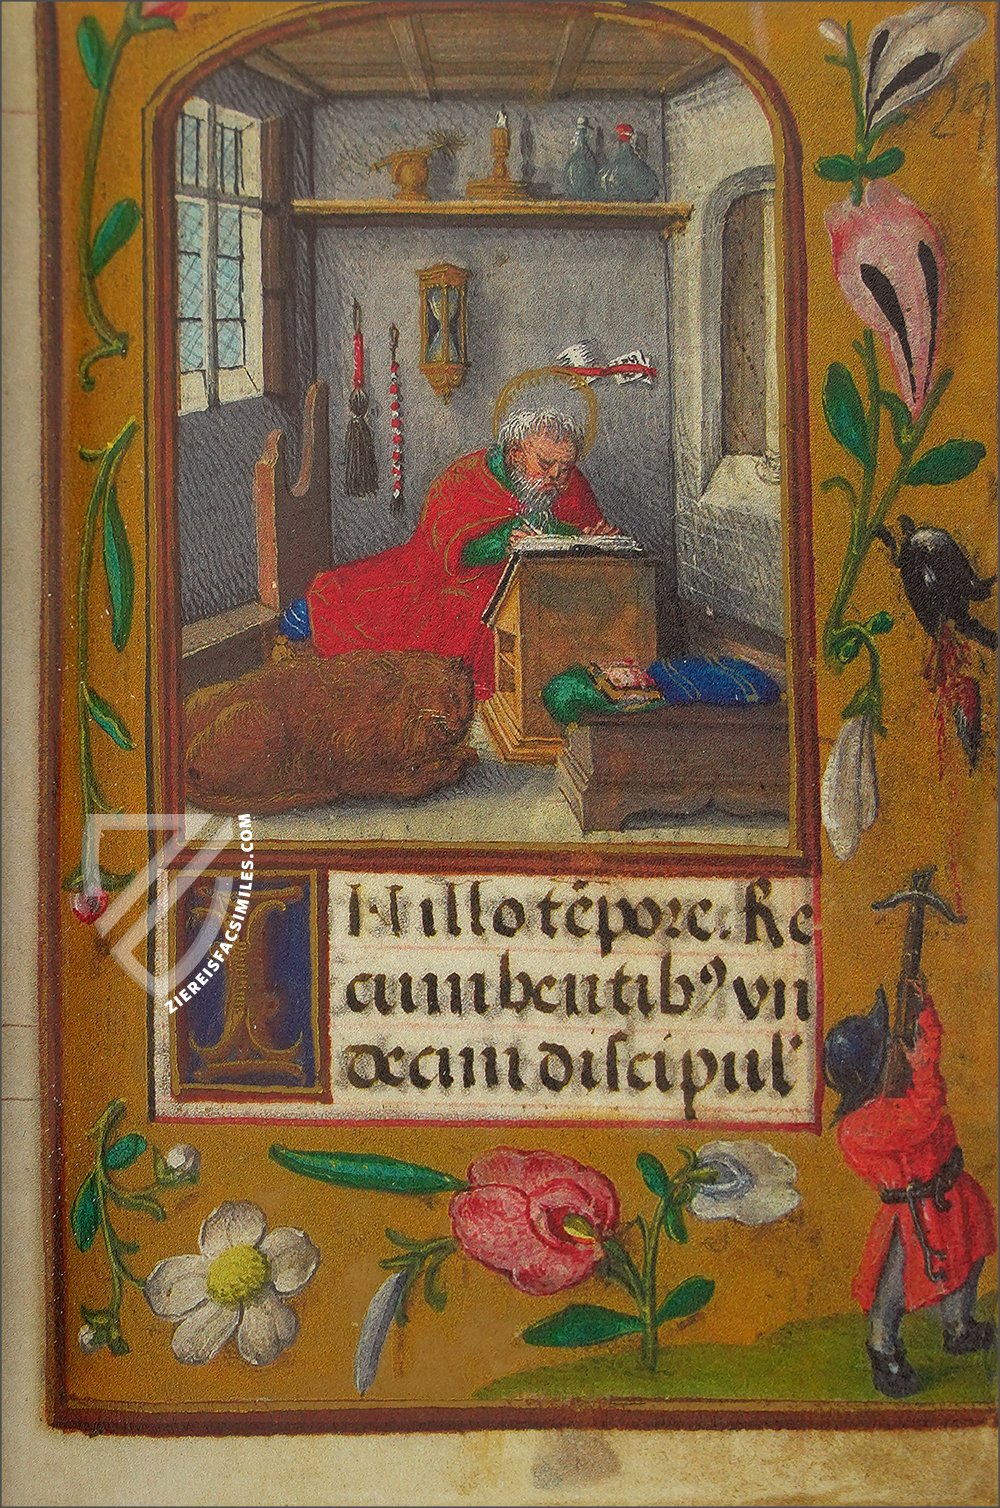 29
IN illo tēpore. Re
cumbentibꝰ vn
decim discipul'
ZIEREISFACSIMILES.COM